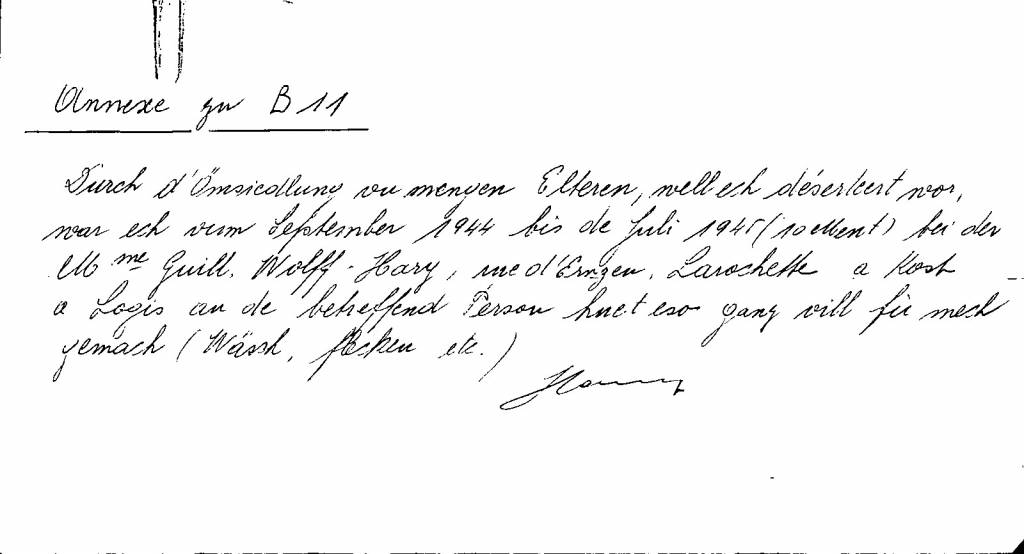 Annexe zu B 11
Durch d'Ömsiedlung vu mengen Elteren, well ech déserteert wor,
war ech vum September 1944 bis de Juli 1945 (10 Ment) bei der
Mme Guill. Wolff-Hary, rue d'Ernzen, Larochette a Kost
a Logis an de betreffend Person huet eso ganz vill fir mech
gemach (Wäsch, flecken etc.)